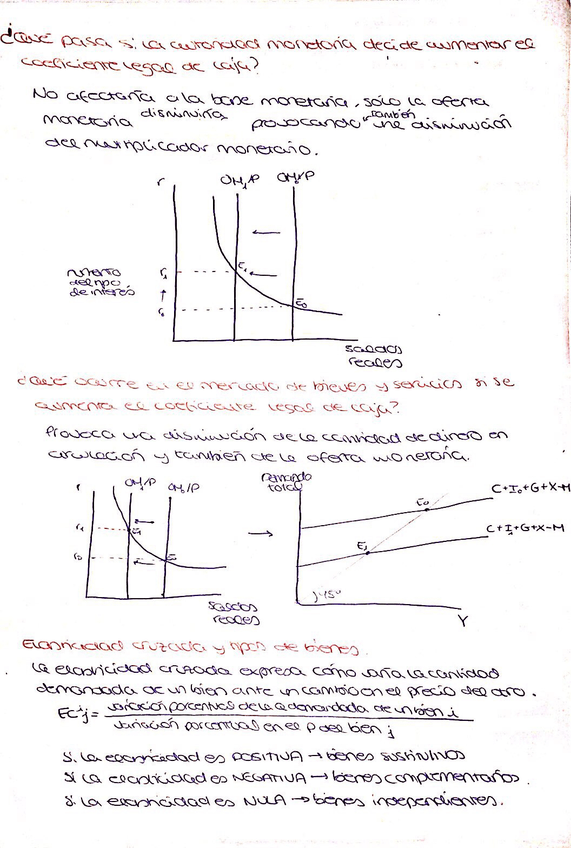 ¿Qué pasa si la autoridad monetaria decide aumentar el
coeficiente legal de caja?
No afectaría a la base monetaria, sólo la oferta
monetaria disminuiría provocando también una disminución
del multiplicador monetario.
r
OM₁/P
OM₀/P
r₁
E₁
aumento
del tipo
de interés
r₀
E₀
saldos
reales
¿Qué ocurre en el mercado de bienes y servicios si se
aumenta el coeficiente legal de caja?
Provoca una disminución de la cantidad de dinero en
circulación y también de la oferta monetaria.
r
OM₁/P
OM₀/P
r₁
E₁
r₀
saldos
reales
Demanda
total
E₀
C+I₀+G+X-M
E₁
C+I₁+G+X-M
45º
Y
Elasticidad cruzada y tipos de bienes.
La elasticidad cruzada expresa cómo varía la cantidad
demandada de un bien ante un cambio en el precio del otro.
Ecij = variación porcentual de la Q demandada de un bien i
variación porcentual en el P del bien j
Si la elasticidad es POSITIVA → bienes sustitutivos
Si la elasticidad es NEGATIVA → bienes complementarios.
Si la elasticidad es NULA → bienes independientes.